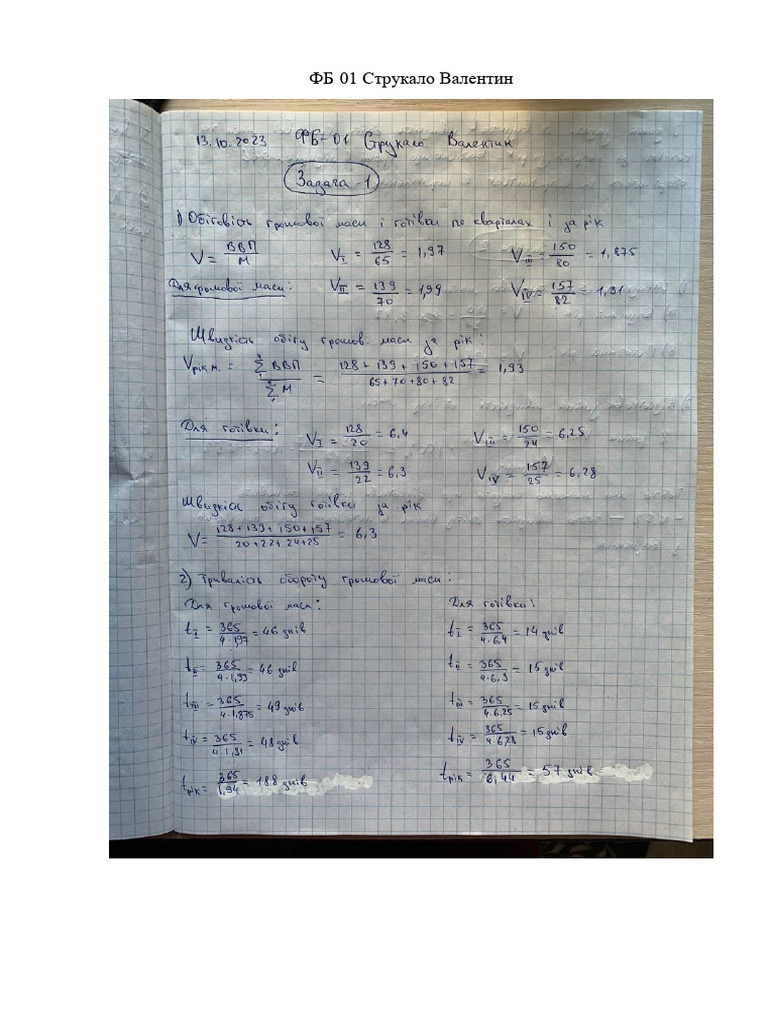 ФБ 01 Струкало Валентин
13.10.2023 ФБ-01 Струкало Валентин
Задача-1
1) Обіговість грошової маси і готівки по кварталах і за рік
V = ВВП / М V_I = 128/65 = 1,97 V_III = 150/80 = 1,875
Для громової маси: V_II = 139/70 = 1,99 V_IV = 157/82 = 1,91
Швидкість обігу грошов. маси за рік:
V рік м. = ∑ ВВП / ∑ М = 128+139+150+157 / 65+70+80+82 = 1,93
Для готівки: V_I = 128/20 = 6,4 V_III = 150/24 = 6,25
V_II = 139/22 = 6,3 V_IV = 157/25 = 6,28
Швидкіс обігу готівки за рік
V = 128+139+150+157 / 20+22+24+25 = 6,3
2) Тривалість обороту грошової маси:
Для грошової маси: Для готівки:
t_I = 365 / 4·1,97 = 46 днів t_I = 365 / 4·6,4 = 14 днів
t_II = 365 / 4·1,99 = 46 днів t_II = 365 / 4·6,3 = 15 днів
t_III = 365 / 4·1,875 = 49 днів t_III = 365 / 4·6,25 = 15 днів
t_IV = 365 / 4·1,91 = 48 днів t_IV = 365 / 4·6,28 = 15 днів
t рік = 365 / 1,94 = 188 днів t рік = 365 / 6,44 = 57 днів